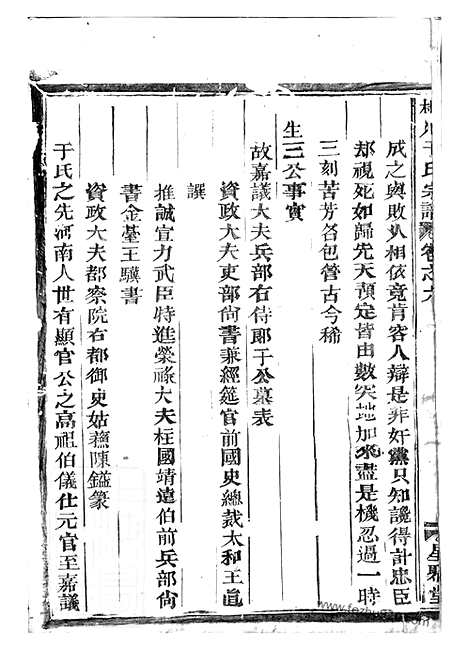 于氏宗譜 卷之六
成之與敗以相依竟肯容人辯是非奸黨只知讒得計忠臣
却視死如歸先天預定皆由數突地加來盡是機忍過一時
三刻苦芳名包管古今稀
生三公事實
故嘉議大夫兵部右侍郎于公墓表
資政大夫吏部尙書兼經筵官前國史總裁太和王直
譔
推誠宣力武臣特進榮祿大夫柱國靖遠伯前兵部尙
書金臺王驥書
資政大夫都察院右都御史姑蘇陳鎰篆
于氏之先河南人世有顯官公之高祖伯儀仕元官至嘉議